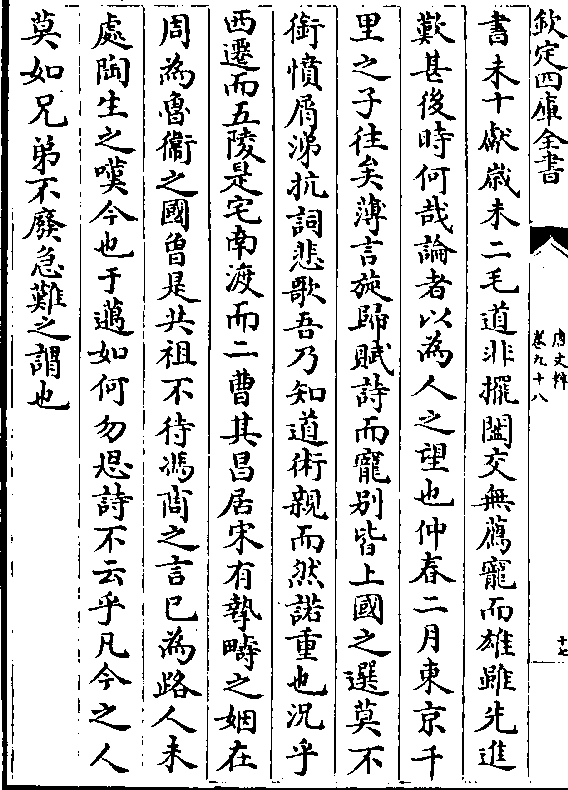 欽定四庫全書
唐文粹
卷九十八
十七
書未十獻嵗未二毛道非擺闔交無薦寵而雄雖先進
歎甚後時何哉論者以為人之望也仲春二月東京千
里之子往矣薄言旋歸賦詩而寵别皆上國之選莫不
銜憤屑涕抗詞悲歌吾乃知道術親而然諾重也況乎
西遷而五陵是宅南渡而二曹其昌居宋有執疇之姻在
周為魯衞之國曾是共祖不待馮商之言已為路人未
處陶生之嘆今也于邁如何勿思詩不云乎凡今之人
莫如兄弟不廢急難之謂也